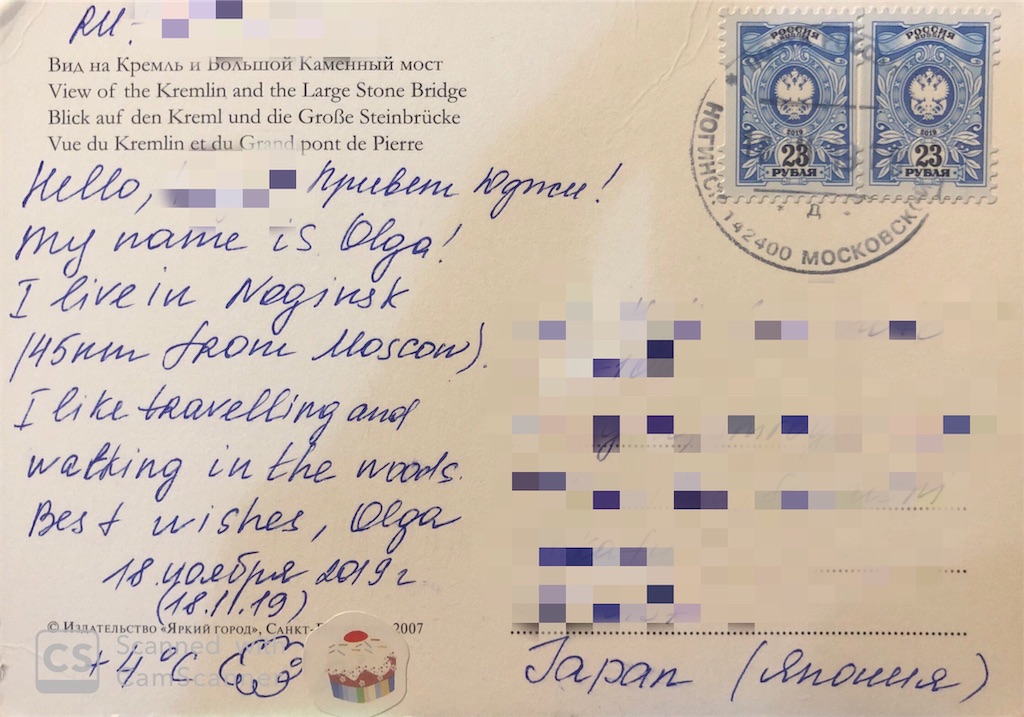 RU-
Вид на Кремль и Большой Каменный мост
View of the Kremlin and the Large Stone Bridge
Blick auf den Kreml und die Große Steinbrücke
Vue du Kremlin et du Grand pont de Pierre
Hello, Привет Юджи!
My name is Olga!
I live in Noginsk
(45km from Moscow).
I like travelling and
walking in the woods.
Best wishes, Olga
18 ноября 2019 г
(18.11.19)
© Издательство «Яркий город», Санкт- 2007
+4°C
РОССИЯ
RUSSIA
2019
23
РУБЛЯ
РОССИЯ
RUSSIA
2019
23
РУБЛЯ
142400 МОСКОВСК
Д
Japan (Япония)
CS Scanned with
CamScanner